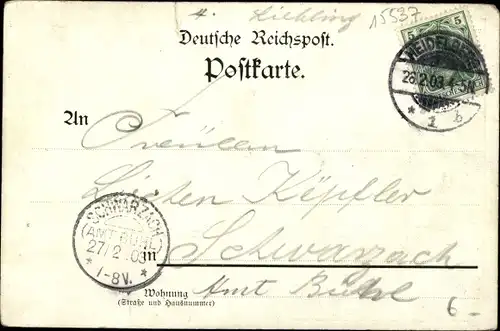 A. Liebling 15537
Deutsche Reichspost.
Postkarte.
5 5
HEIDELBERG
26.2.03. 4-5N
* 1 b
An Fräulein
Lischen Köpfler
SCHWARZACH
(AMT BÜHL)
27/2.03
* 1-8V. *
in Schwarzach
Wohnung
(Straße und Hausnummer)
Amt Bühl
6-